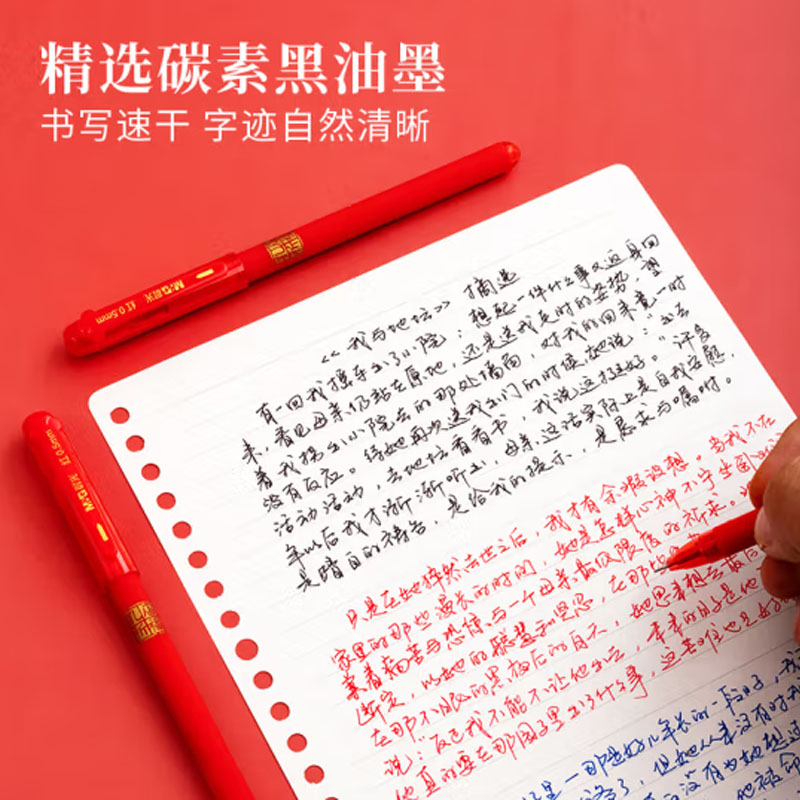 精选碳素黑油墨
书写速干 字迹自然清晰
M&G 晨光 红 0.5mm
M&G 晨光 红 0.5mm
《我与地坛》 摘选
有一回我摇车出了小院；想起一件什么事又返身回
来，看见母亲仍站在原地，还是送我走时的姿势，望
着我拐出小院去的那处墙角，对我的回来竟一时
没有反应。待她再次送我出门的时候，她说：“出去
活动活动，去地坛看看书，我说这挺好。”许多
年以后我才渐渐听出，母亲这话实际上是自我安慰，
是暗自的祷告，是给我的提示，是恳求与嘱咐。
只是在她猝然去世之后，我才有余暇设想。当我不在
家里的那些漫长的时间，她是怎样心神不宁坐
兼着痛苦与惊恐与一个母亲最低限度的祈求。
断定，以她的聪慧和坚忍，在那些
在那不眠的黑夜后的白天，她思来想去最后
说：“反正我不能不让他出去，未来的日子是他
他真的要在那园子里出了什么事，这苦难也只好
那是好几年长的一段日子，我
但她从来没有对我
没有为她想过
他被命